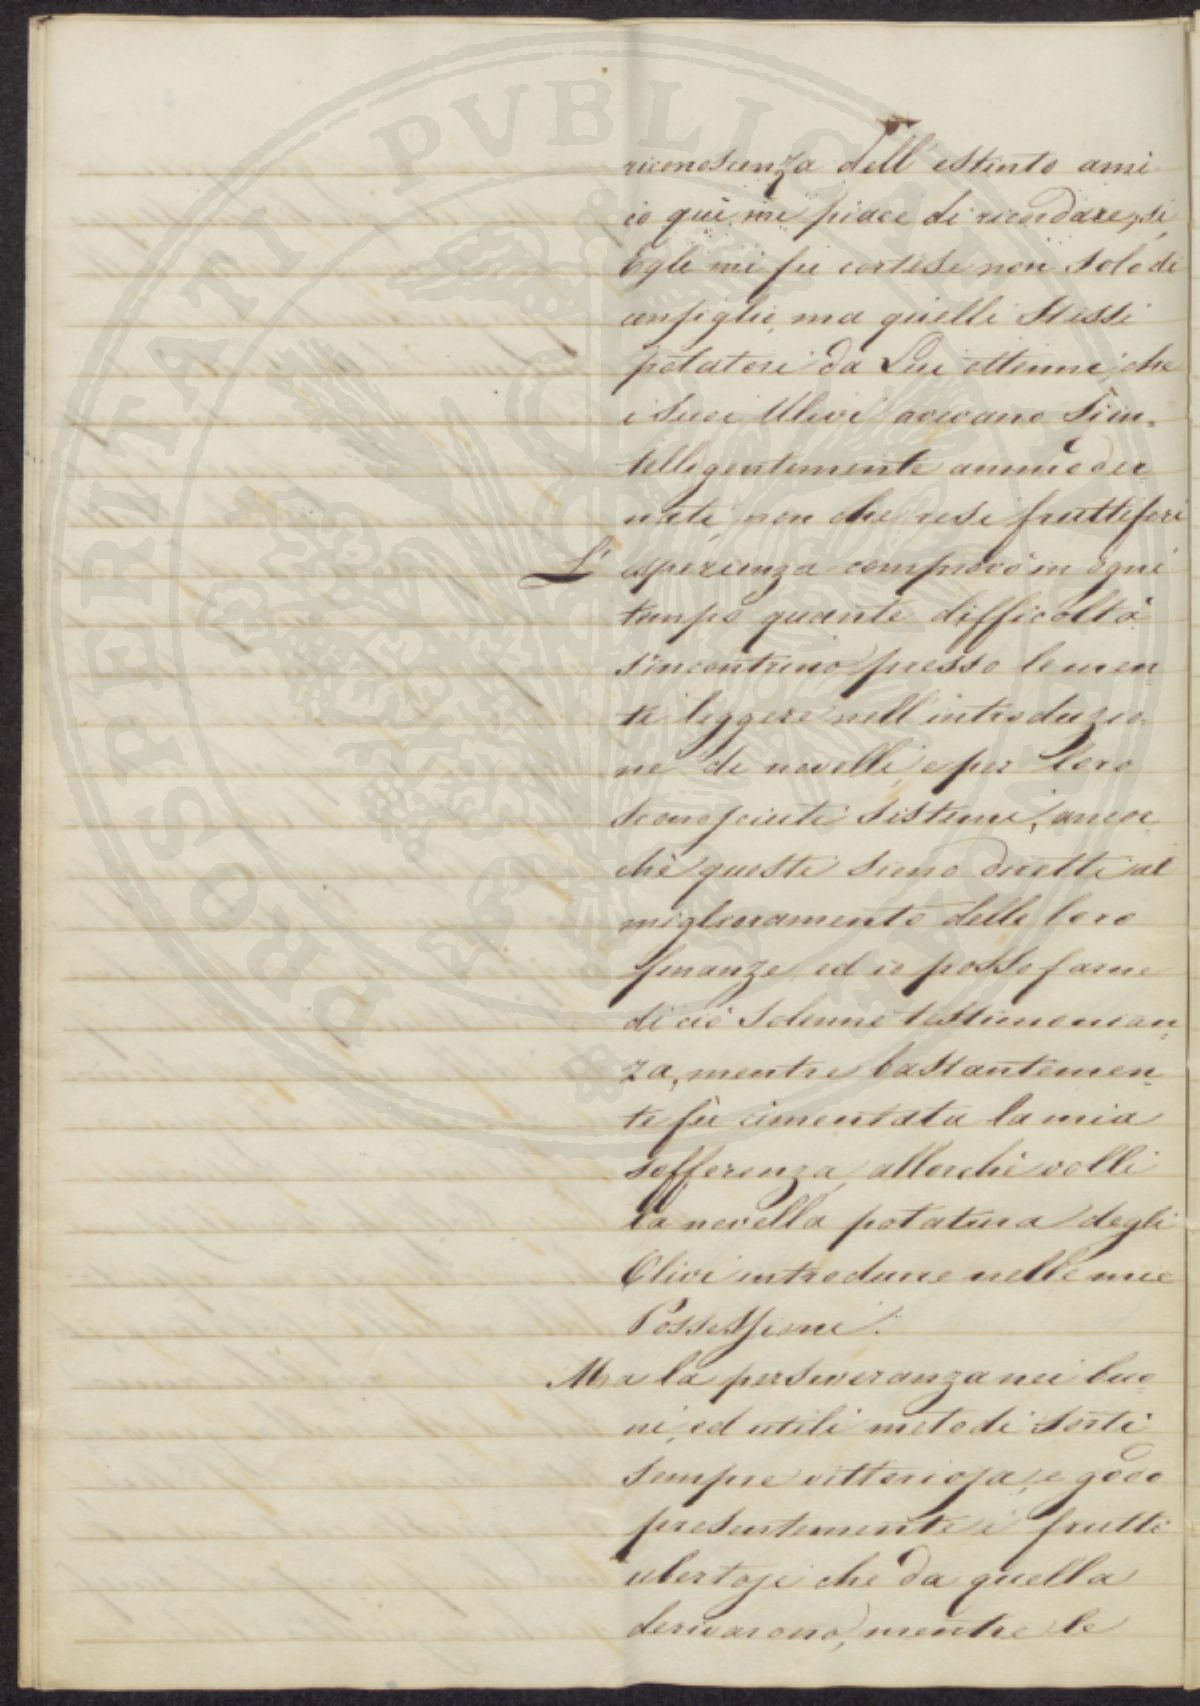 PROSPERITATI PVBLICAE
riconoscenza dell'estinto ami
co qui mi piace di ricordare, si
Egli mi fu cortese non solo di
consiglio, ma quelli stessi
potatori da Lui ottenni, che
i suoi Ulivi avevano sì in=
telligentemente ammoder
nati, non che resi fruttiferi
L'esperienza comprovò in ogni
tempo quante difficoltà
s'incontrino presso le men
ti leggere nell'introduzio
ne di novelli, e per loro
sconosciuti sistemi, ancor
chè questi siano diretti al
miglioramento delle loro
finanze, ed io posso farne
di ciò solenne testimonian=
za, mentre bastantemen=
te fù cimentata la mia
sofferenza, allorchè volli
la novella potatura degli
Olivi introdurre nelle mie
Possessioni.
Ma la perseveranza nei buo
ni, ed utili metodi sortì
sempre vittoriosa, e godo
presentemente i frutti
ubertosi che da quella
derivarono, mentre le